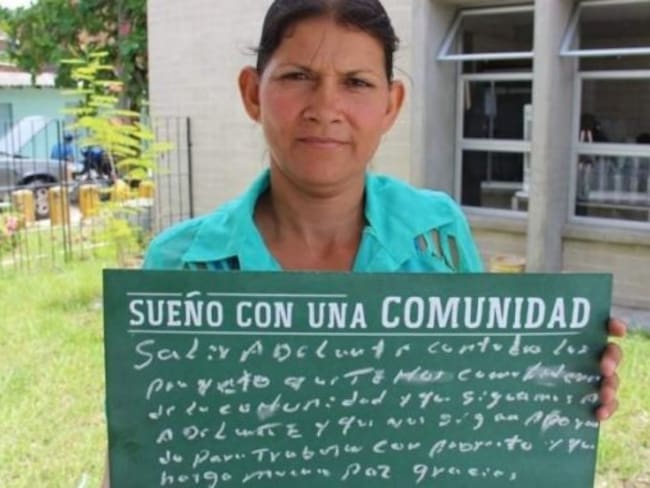 SUEÑO CON UNA COMUNIDAD
Salir ADelante con todo los
proyecto que TEMos como lider
de la comunidad y que sigamos A
ADeLanTE y que nos sigan Apoyan
do para Trabajar con proyecto y que
haiga mucha Paz gracias